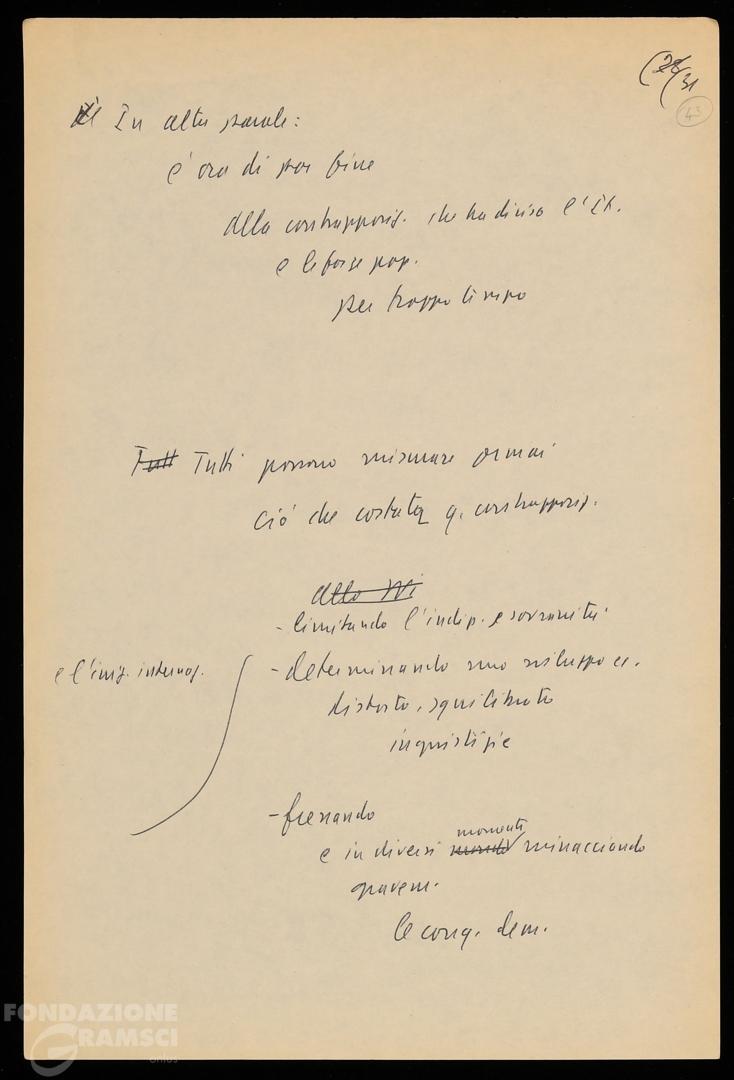 (28/31
43
In altre parole:
è ora di por fine
alla contrapposiz. che ha diviso l'It.
e le forze pop.
per troppo tempo
Tutt Tutti possono misurare ormai
ciò che costata q. contrapposiz.
allo
- limitando l'indip. e sovranità
e l'iniz. internaz.
- determinando uno sviluppo ec.
distorto, squilibrato
ingiustizie
- frenando
momenti
e in diversi minacciando
gravem.
le conq. dem.
FONDAZIONE
GRAMSCI
onlus